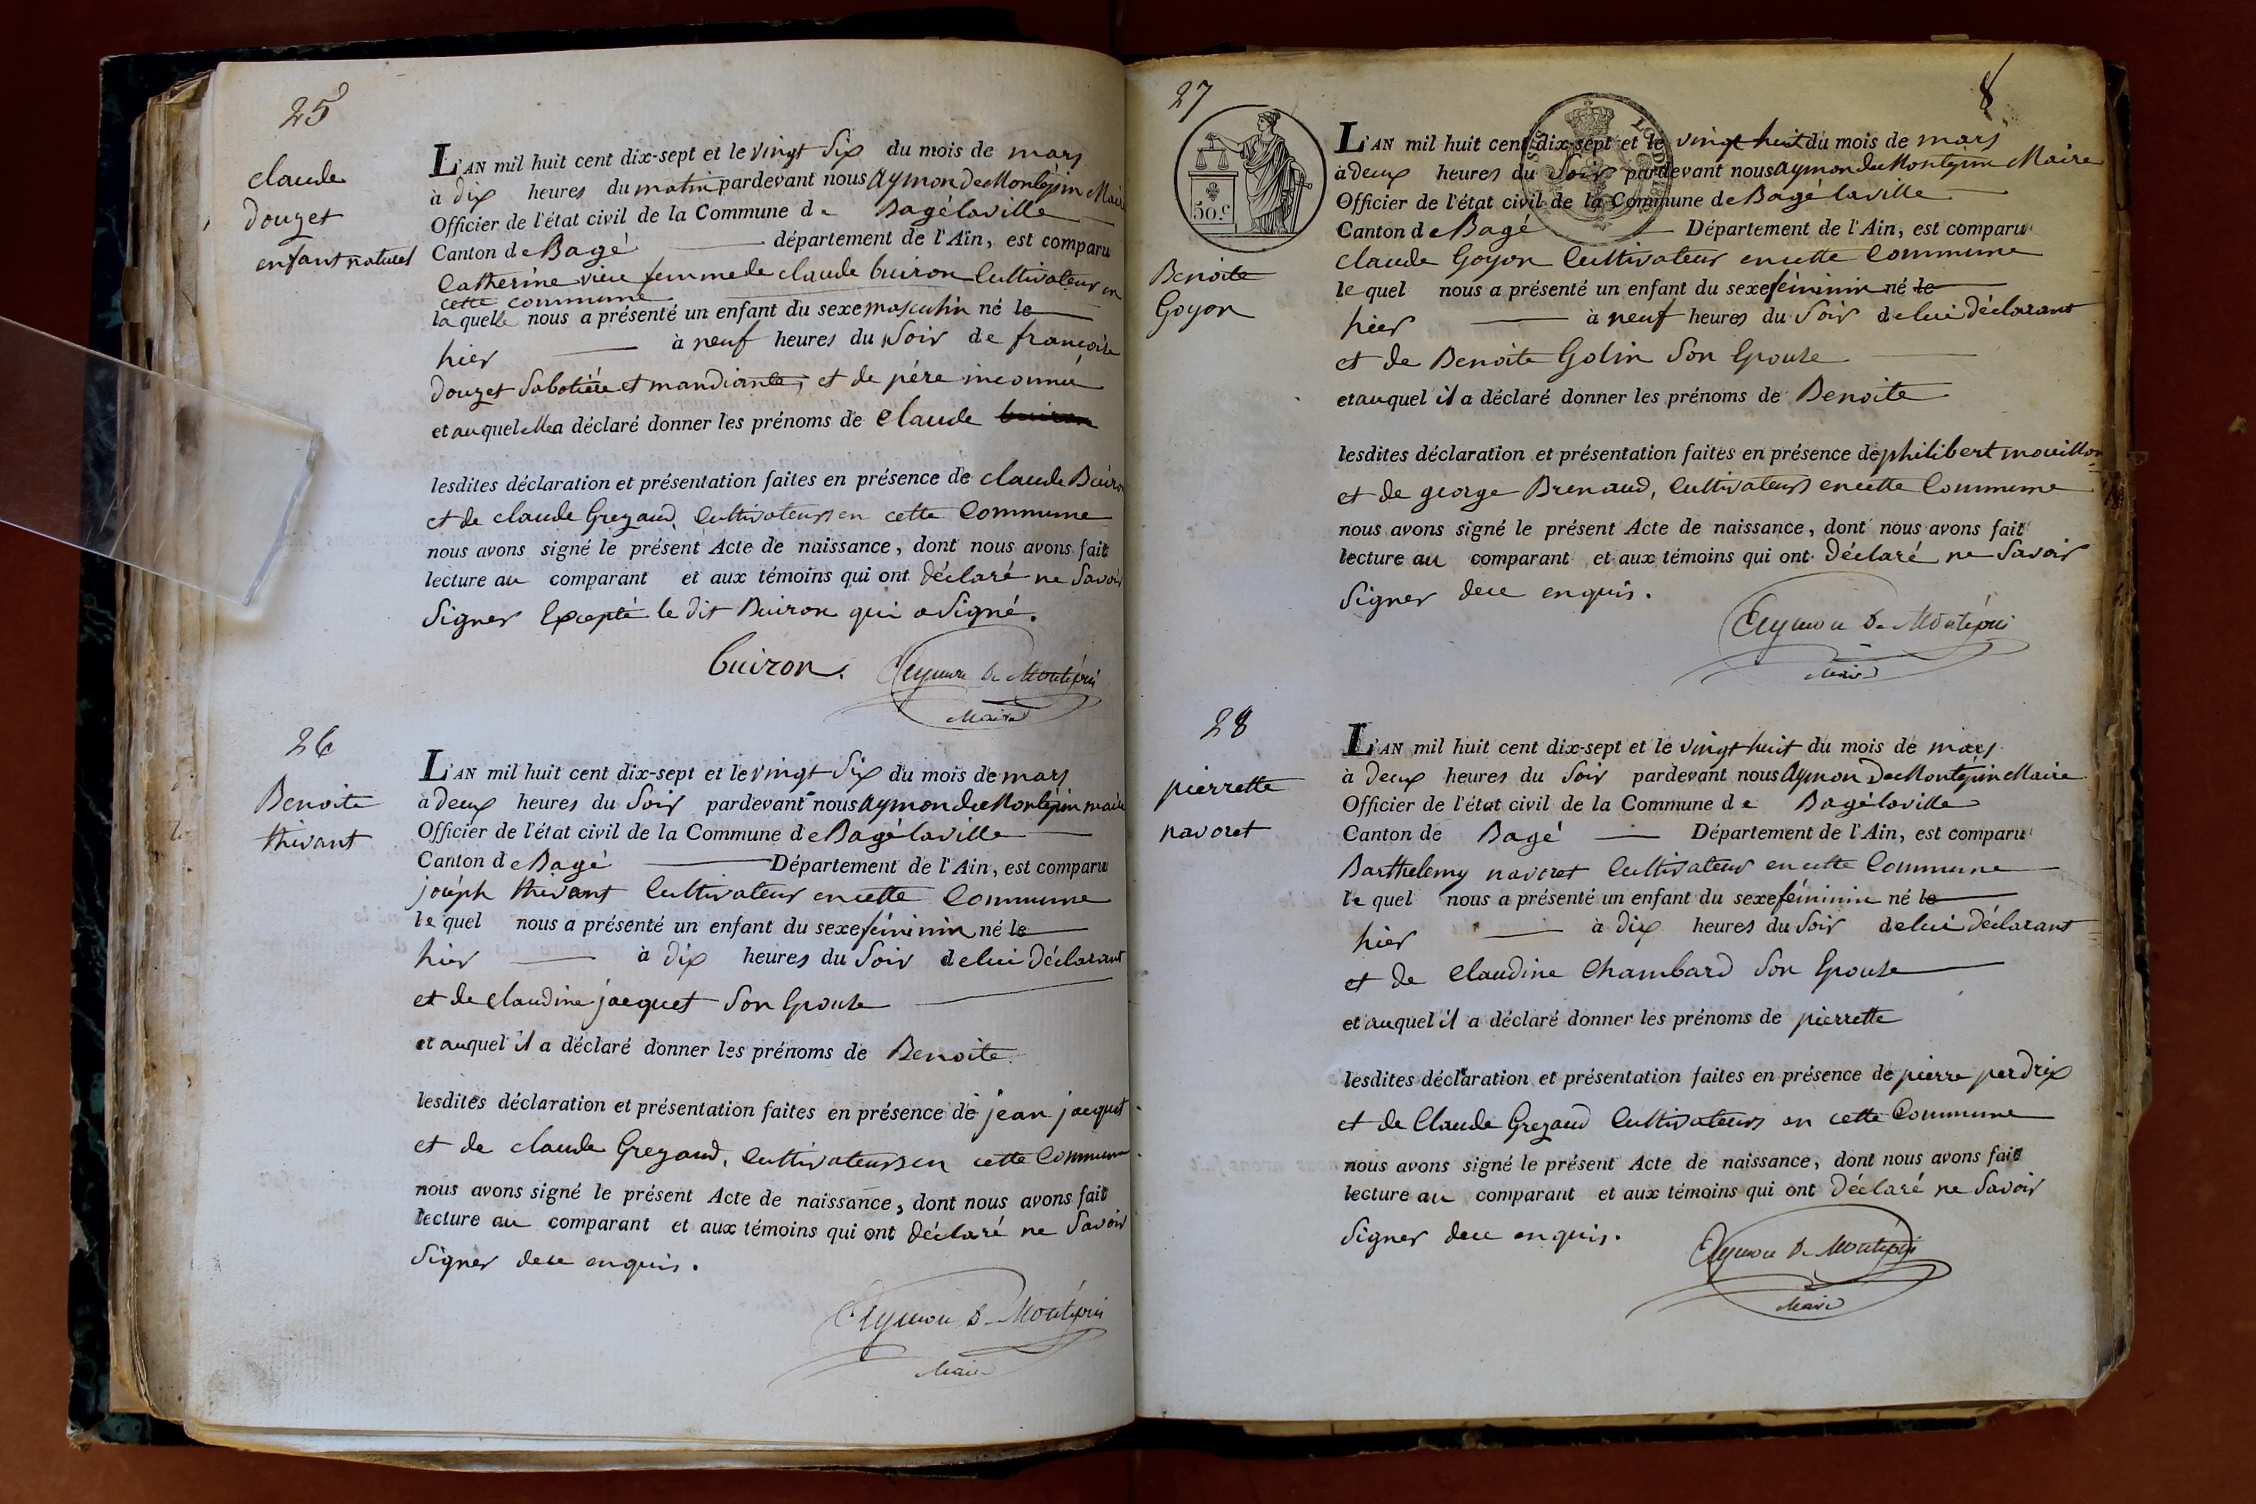 25
claude
douzet
enfant naturel
L'AN mil huit cent dix-sept et le vingt Six du mois de mars
à dix heures du matin pardevant nous Aymon de Montépin Maire
Officier de l'état civil de la Commune de Bagé laville
Canton de Bagé département de l'Ain, est comparu
Catherine vieu femme de claude buiron Cultivateur en
cette commune
laquelle nous a présenté un enfant du sexe masculin né le
hier à neuf heures du Soir de françoise
douzet Sabotière et mandiante, et de père inconnu
et auquel elle a déclaré donner les prénoms de claude buiron
lesdites déclaration et présentation faites en présence de claude Buiron
et de claude Grezaud, Cultivateurs en cette Commune
nous avons signé le présent Acte de naissance, dont nous avons fait
lecture au comparant et aux témoins qui ont déclaré ne Savoir
Signer Excepté le dit Buiron qui a Signé.
buiron. Aymon De Montépin
Maire
26
Benoite
thivant
L'AN mil huit cent dix-sept et le vingt Six du mois de mars
à deux heures du Soir pardevant nous Aymon de Montépin maire
Officier de l'état civil de la Commune de Bagé laville
Canton de Bagé Département de l'Ain, est comparu
joseph thivant Cultivateur en cette Commune
lequel nous a présenté un enfant du sexe féminin né le
hier à dix heures du Soir de lui déclarant
et de claudine jacquet Son Epouse
et auquel il a déclaré donner les prénoms de Benoite
lesdites déclaration et présentation faites en présence de jean jacquet
et de claude Grezaud, Cultivateurs en cette Commune
nous avons signé le présent Acte de naissance, dont nous avons fait
lecture au comparant et aux témoins qui ont déclaré ne Savoir
Signer de ce enquis.
Aymon De Montépin
Maire
27
8
50.c
Benoite
Goyon
L'AN mil huit cent dix-sept et le vingt huit du mois de mars
à deux heures du Soir pardevant nous Aymon de Montépin Maire
Officier de l'état civil de la Commune de Bagé laville
Canton de Bagé Département de l'Ain, est comparu
claude Goyon Cultivateur en cette Commune
lequel nous a présenté un enfant du sexe féminin né le
hier à neuf heures du Soir de lui déclarant
et de Benoite Golin Son Epouse
et auquel il a déclaré donner les prénoms de Benoite
lesdites déclaration et présentation faites en présence de philibert mouillon
et de george Brenaud, Cultivateurs en cette Commune
nous avons signé le présent Acte de naissance, dont nous avons fait
lecture au comparant et aux témoins qui ont déclaré ne Savoir
Signer de ce enquis.
Aymon De Montépin
Maire
28
pierrette
navoret
L'AN mil huit cent dix-sept et le vingt huit du mois de mars
à deux heures du Soir pardevant nous Aymon De Montépin Maire
Officier de l'état civil de la Commune de Bagé laville
Canton de Bagé Département de l'Ain, est comparu
Barthelemy navoret Cultivateur en cette Commune
lequel nous a présenté un enfant du sexe féminin né le
hier à dix heures du Soir de lui déclarant
et de claudine Chambard Son Epouse
et auquel il a déclaré donner les prénoms de pierrette
lesdites déclaration et présentation faites en présence de pierre perdrix
et de Claude Grezaud Cultivateurs en cette Commune
nous avons signé le présent Acte de naissance, dont nous avons fait
lecture au comparant et aux témoins qui ont déclaré ne Savoir
Signer de ce enquis.
Aymon De Montépin
Maire